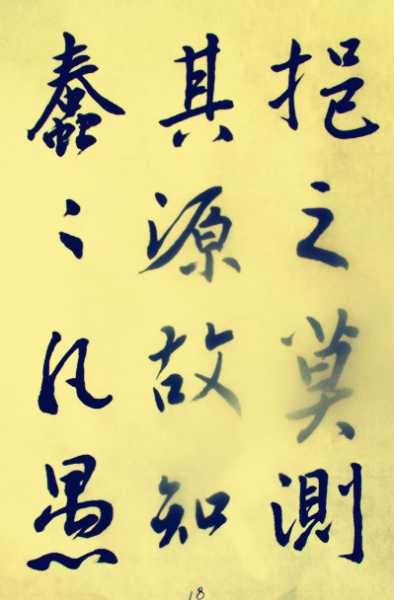 挹之莫測
其源故知
蠢〻凡愚
18